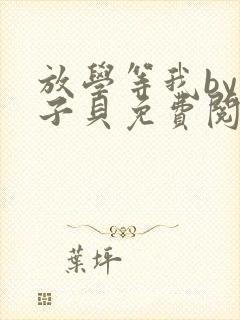 放學等我by
子貝免費閱
葉坪